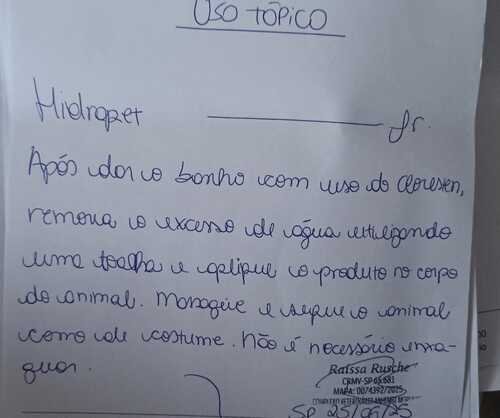 USO TÓPICO
Hidropet ———— fr.
Após dar o banho com uso do Cloresten,
remova o excesso de água utilizando
uma toalha e aplique o produto no corpo
do animal. Massageie e seque o animal
como de costume. Não é necessário enxa-
guar.
Raissa Rusche
CRMV-SP 65.681
MAPA: 0074392/2025
SP 25/07/25